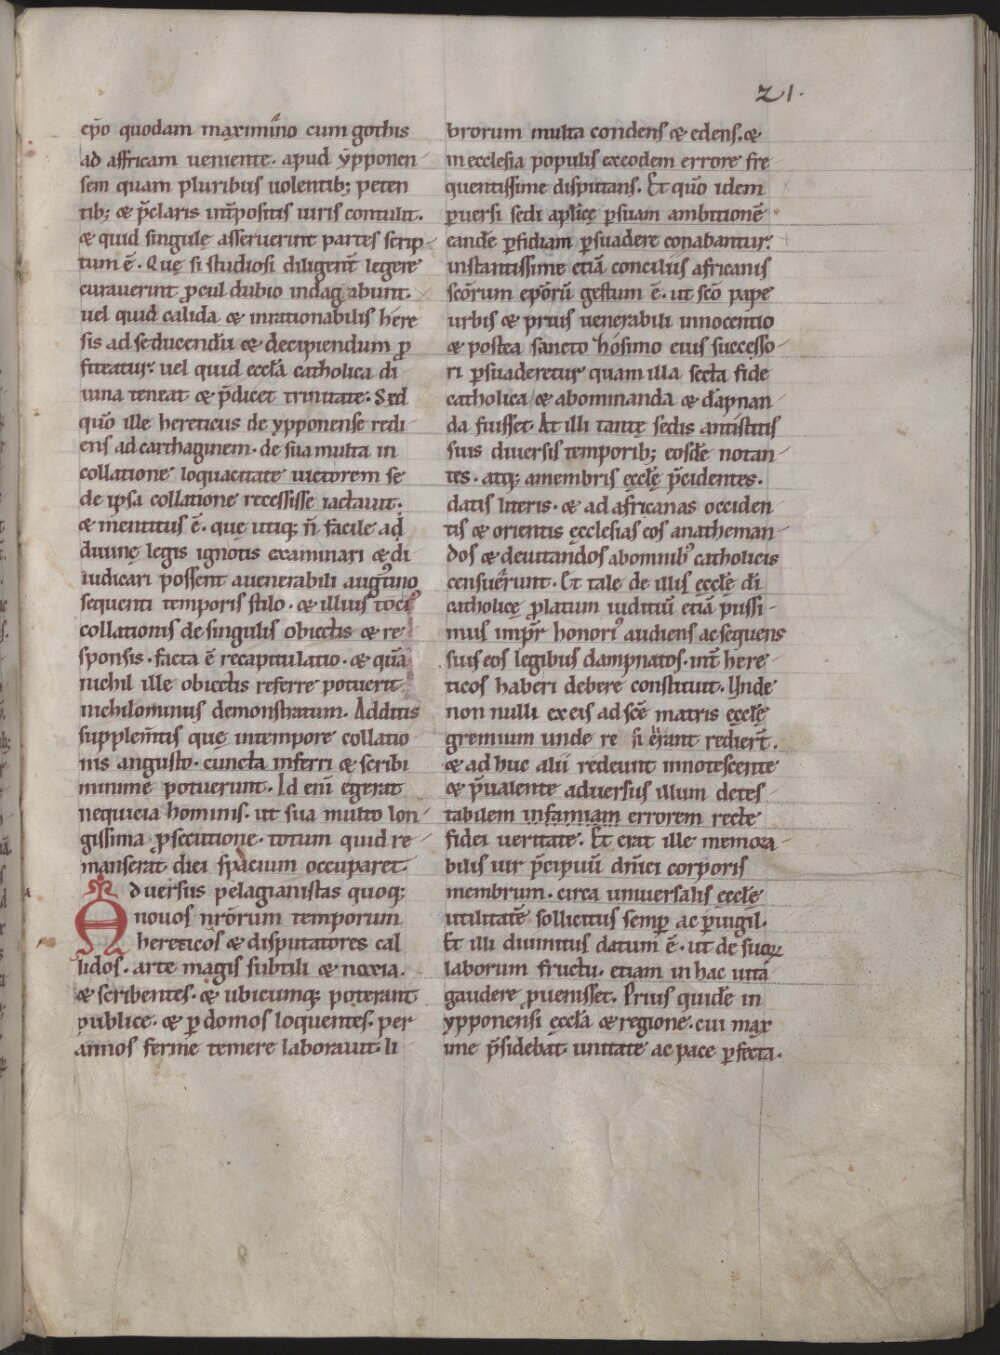 21.
ep̄o quodam maximino cum gothis
ad affricam ueniente. apud ypponen
sem quam pluribus uolentib; peten
tib; & p̄claris int̄positis uiris contulit.
& quid singulę asseruerint partes scrip
tum ē. Quę si studiosi diligent̄ legere
curauerint p̱cul dubio indagabunt.
uel quid calida & inrationabilis here
sis ad seducendū & decipiendum p̱
fiteatur. uel quid eccl̄a catholica di
uina teneat & p̄dicet trinitate. Sed
quō ille hereticus de ypponense redi
ens ad carthaginem. de sua multa in
collatione loquacitate uictorem se
de ipsa collatione recessisse iactauit.
& mentitus ē. que utiq; n̄ facile ad
diuinę legis ignotis examinari & di
iudicari possent auenerabili aug᷒tino
sequenti temporis stilo. & illius toci᷒
collationis de singulis obiectis & re
sponsis. facta ē recapitulatio. & quā
nichil ille obiectis referre potuerit
nichilominus demonstratum. Additis
supplem̄tis quę intempore collatio
nis angusto. cuncta inferri & scribi
minime potuerunt. Id enī egerat
nequicia hominis. ut sua multo lon
gissima p̱secutione. totum quid re
manserat diei spacium occuparet.
Aduersus pelagianistas quoq;
nouos nr̄orum temporum
hereticos & disputatores cal
lidos. arte magis subtili & noxia.
& scribentes. & ubicumq; poterant
publice. & p̱ domos loquentes. per
annos ferme temere laborauit. li
brorum multa condens & edens. &
in ecclesia populis exeodem errore fre
quentissime disputans. Et quō idem
p̱uersi sedi apl̄icę p̱suam ambitionē
eandē p̱fidiam p̱suadere conabantur.
instantissime etiā conciliis africanis
sc̄orum ep̄orū gestum ē. ut sc̄o pape
urbis & prius uenerabili innocentio
& postea sancto hosimo eius successo
ri p̱suaderetur quam illa secta fide
catholica & abominanda & dāpnan
da fuisset. At illi tantę sedis antistitis
suis diuersis temporib; eosdē notan
tes. atq; amembris eccl̄ę p̄cidentes.
datis literis. & ad africanas occiden
tis & orientis ęcclesias eos anatheman
dos & deuitandos abomnib᷒ catholicis
censuerunt. Et tale de illis eccl̄ę dī
catholicę p̱latum iuditiū etiā p̄iissi
mus imp̄r honori᷒ audiens ac sequens
suis eos legibus dampnatos. int̄ here
ticos haberi debere constituit. Unde
non nulli ex eis ad sc̄ę matris eccl̄ę
gremium unde re si erant redier̄t.
& ad huc alii redeunt innotescente
& p̄ualente aduersus illum detes
tabilem infamiam errorem recte
fidei ueritate. Et erat ille memora
bilis uir p̄cipuū dn̄ici corporis
membrum. circa uniuersalis eccl̄ę
utilitatē sollicitus semp̱ ac p̱uigil.
Et illi diuinitus datum ē. ut de suoꝝ
laborum fructu. etiam in hac uita
gaudere p̱uenisset. Prius quidē in
ypponensi eccl̄a & regione. cui max
ime p̄sidebat. unitate ac pace p̱fecta.